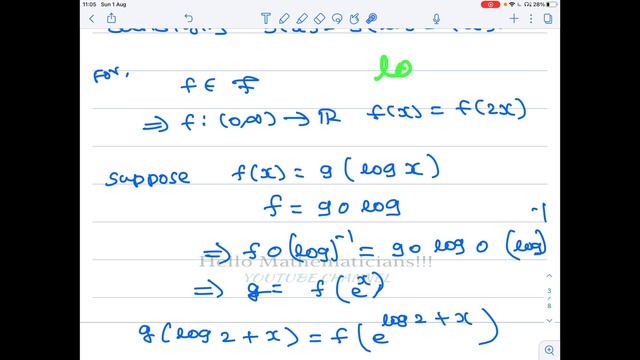 11:05 Sun 1 Aug 28%
For,
lo
f ∈ F
⇒ f : (0,∞) → ℝ f(x) = f(2x)
suppose f(x) = g(log x)
f = g o log
⇒ f o (log)⁻¹ = g o log o (log)⁻¹
Hello Mathematicians!!!
YOUTUBE CHANNEL
⇒ g = f(eˣ)
g(log 2 + x) = f(e^{log 2 + x})
3
8